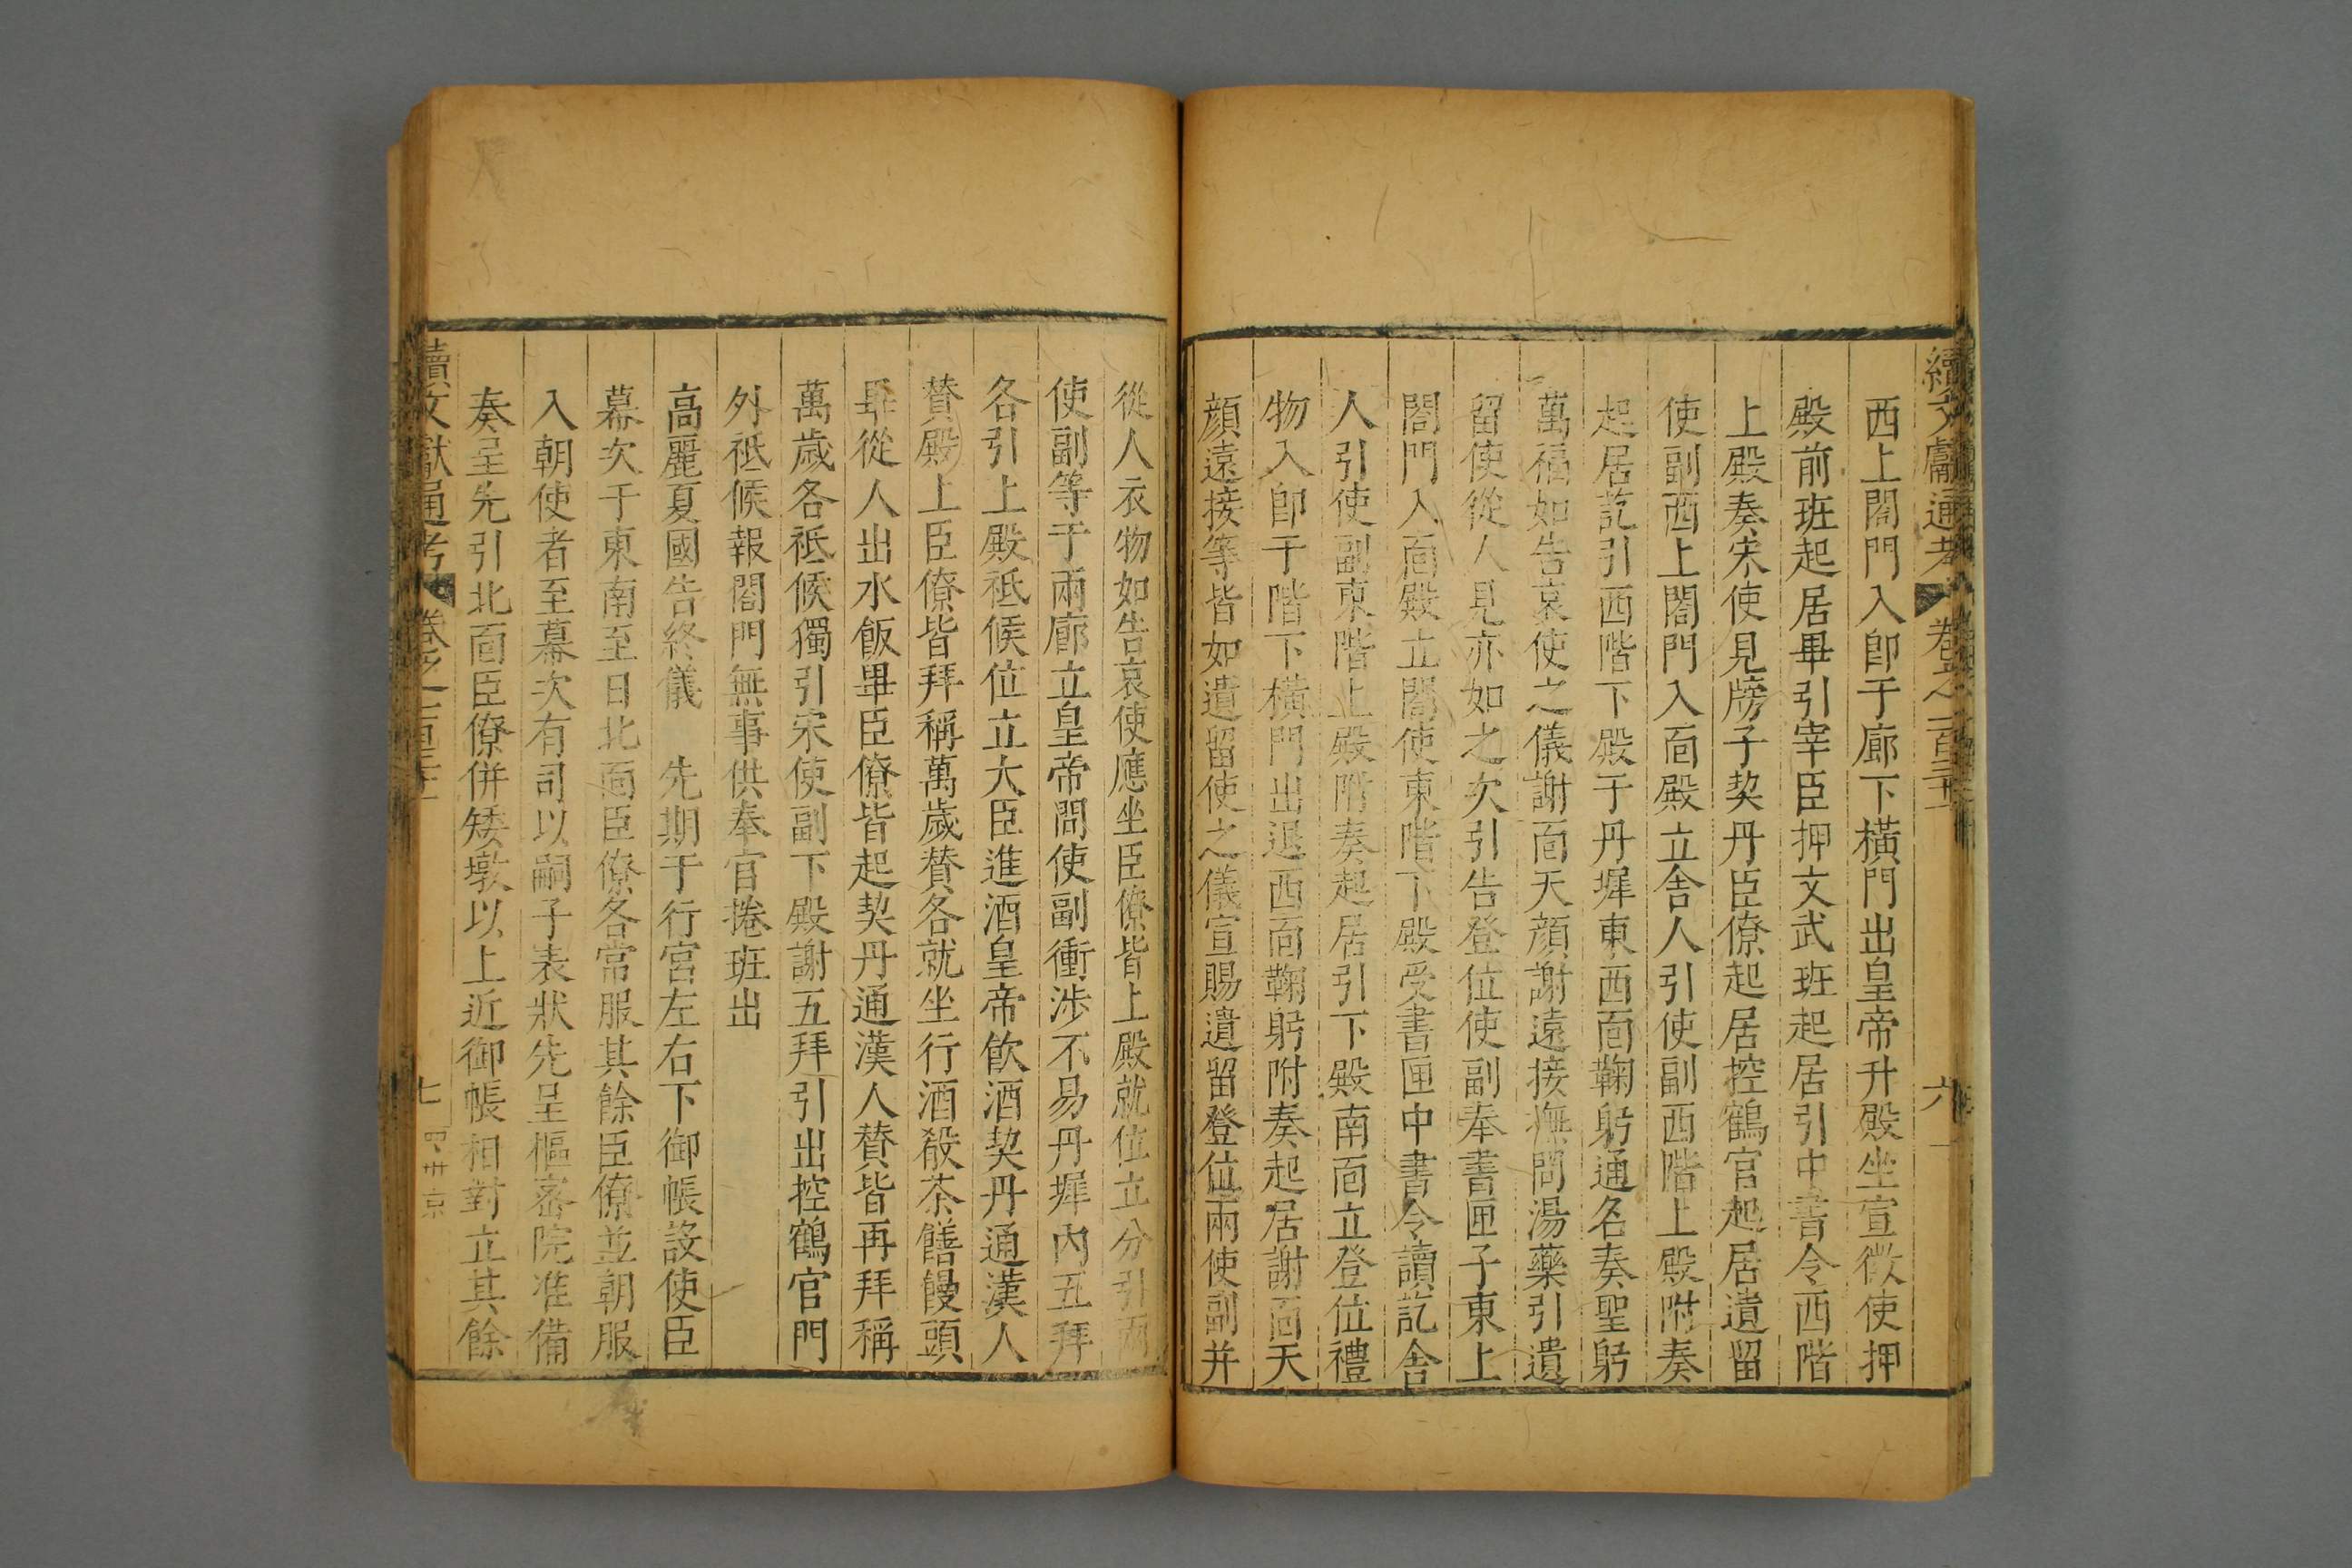 續文獻通考 卷之一百三十 六
西上閣門入卽于廊下橫門出皇帝升殿坐宣徽使押
殿前班起居畢引宰臣押文武班起居引中書令西階
上殿奏宋使見牓子契丹臣僚起居控鶴官起居遺留
使副西上閣門入面殿立舍人引使副西階上殿附奏
起居訖引西階下殿于丹墀東西面鞠躬通名奏聖躬
萬福如告哀使之儀謝面天顔謝遠接撫問湯藥引遺
留使從人見亦如之次引告登位使副奉書匣子東上
閣門入面殿立閣使東階下殿受書匣中書令讀訖舍
人引使副東階上殿附奏起居引下殿南面立登位禮
物入卽于階下橫門出退西面鞠躬附奏起居謝面天
顔遠接等皆如遺留使之儀宣賜遺留登位兩使副并
從人衣物如告哀使應坐臣僚皆上殿就位立分引兩
使副等于兩廊立皇帝問使副衝涉不易丹墀內五拜
各引上殿祗候位立大臣進酒皇帝飲酒契丹通漢人
賛殿上臣僚皆拜稱萬歲賛各就坐行酒殽茶饍饅頭
畢從人出水飯畢臣僚皆起契丹通漢人賛皆再拜稱
萬歲各祗候獨引宋使副下殿謝五拜引出控鶴官門
外祗候報閣門無事供奉官捲班出
高麗夏國告終儀 先期于行宮左右下御帳設使臣
幕次于東南至日北面臣僚各常服其餘臣僚並朝服
入朝使者至幕次有司以嗣子表狀先呈樞密院准備
奏呈先引北面臣僚併矮墩以上近御帳相對立其餘
續文獻通考 卷之一百三十 七